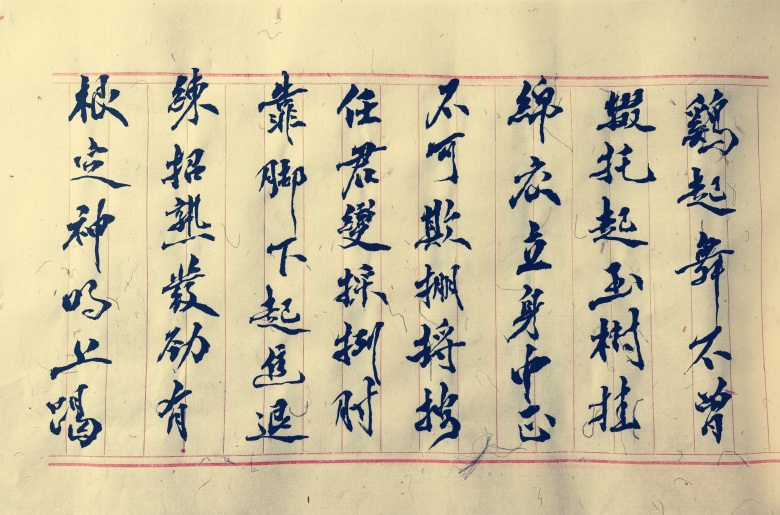 鷄起舞不曾
輟托起玉樹挂
綿衣立身中正
不可欺掤捋按
任君變採挒肘
靠脚下起進退
練招熟發劲有
根定神鸣上蹋